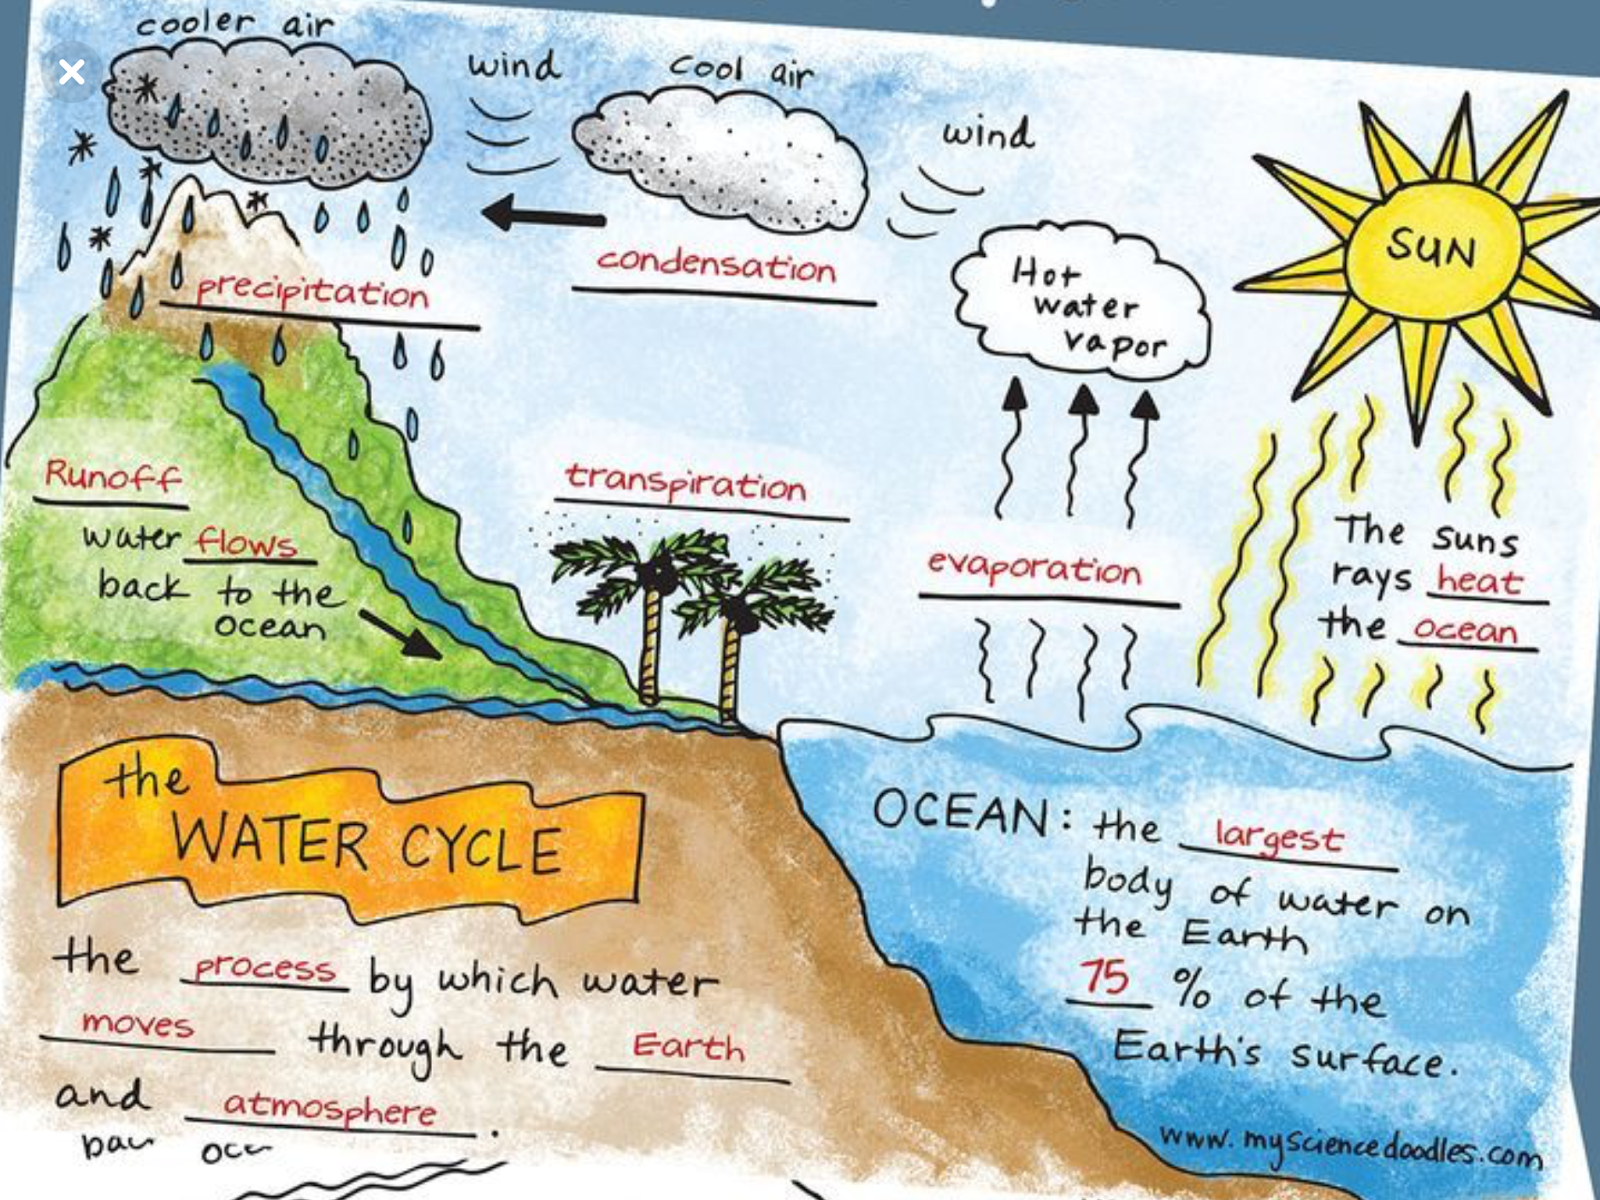 cooler air
wind
cool air
wind
SUN
condensation
Hot
water
vapor
precipitation
Runoff
water flows
back to the
ocean
transpiration
evaporation
The suns
rays heat
the ocean
the
WATER CYCLE
the process by which water
moves through the Earth
and atmosphere.
OCEAN: the largest
body of water on
the Earth
75 % of the
Earth's surface.
www.mysciencedoodles.com